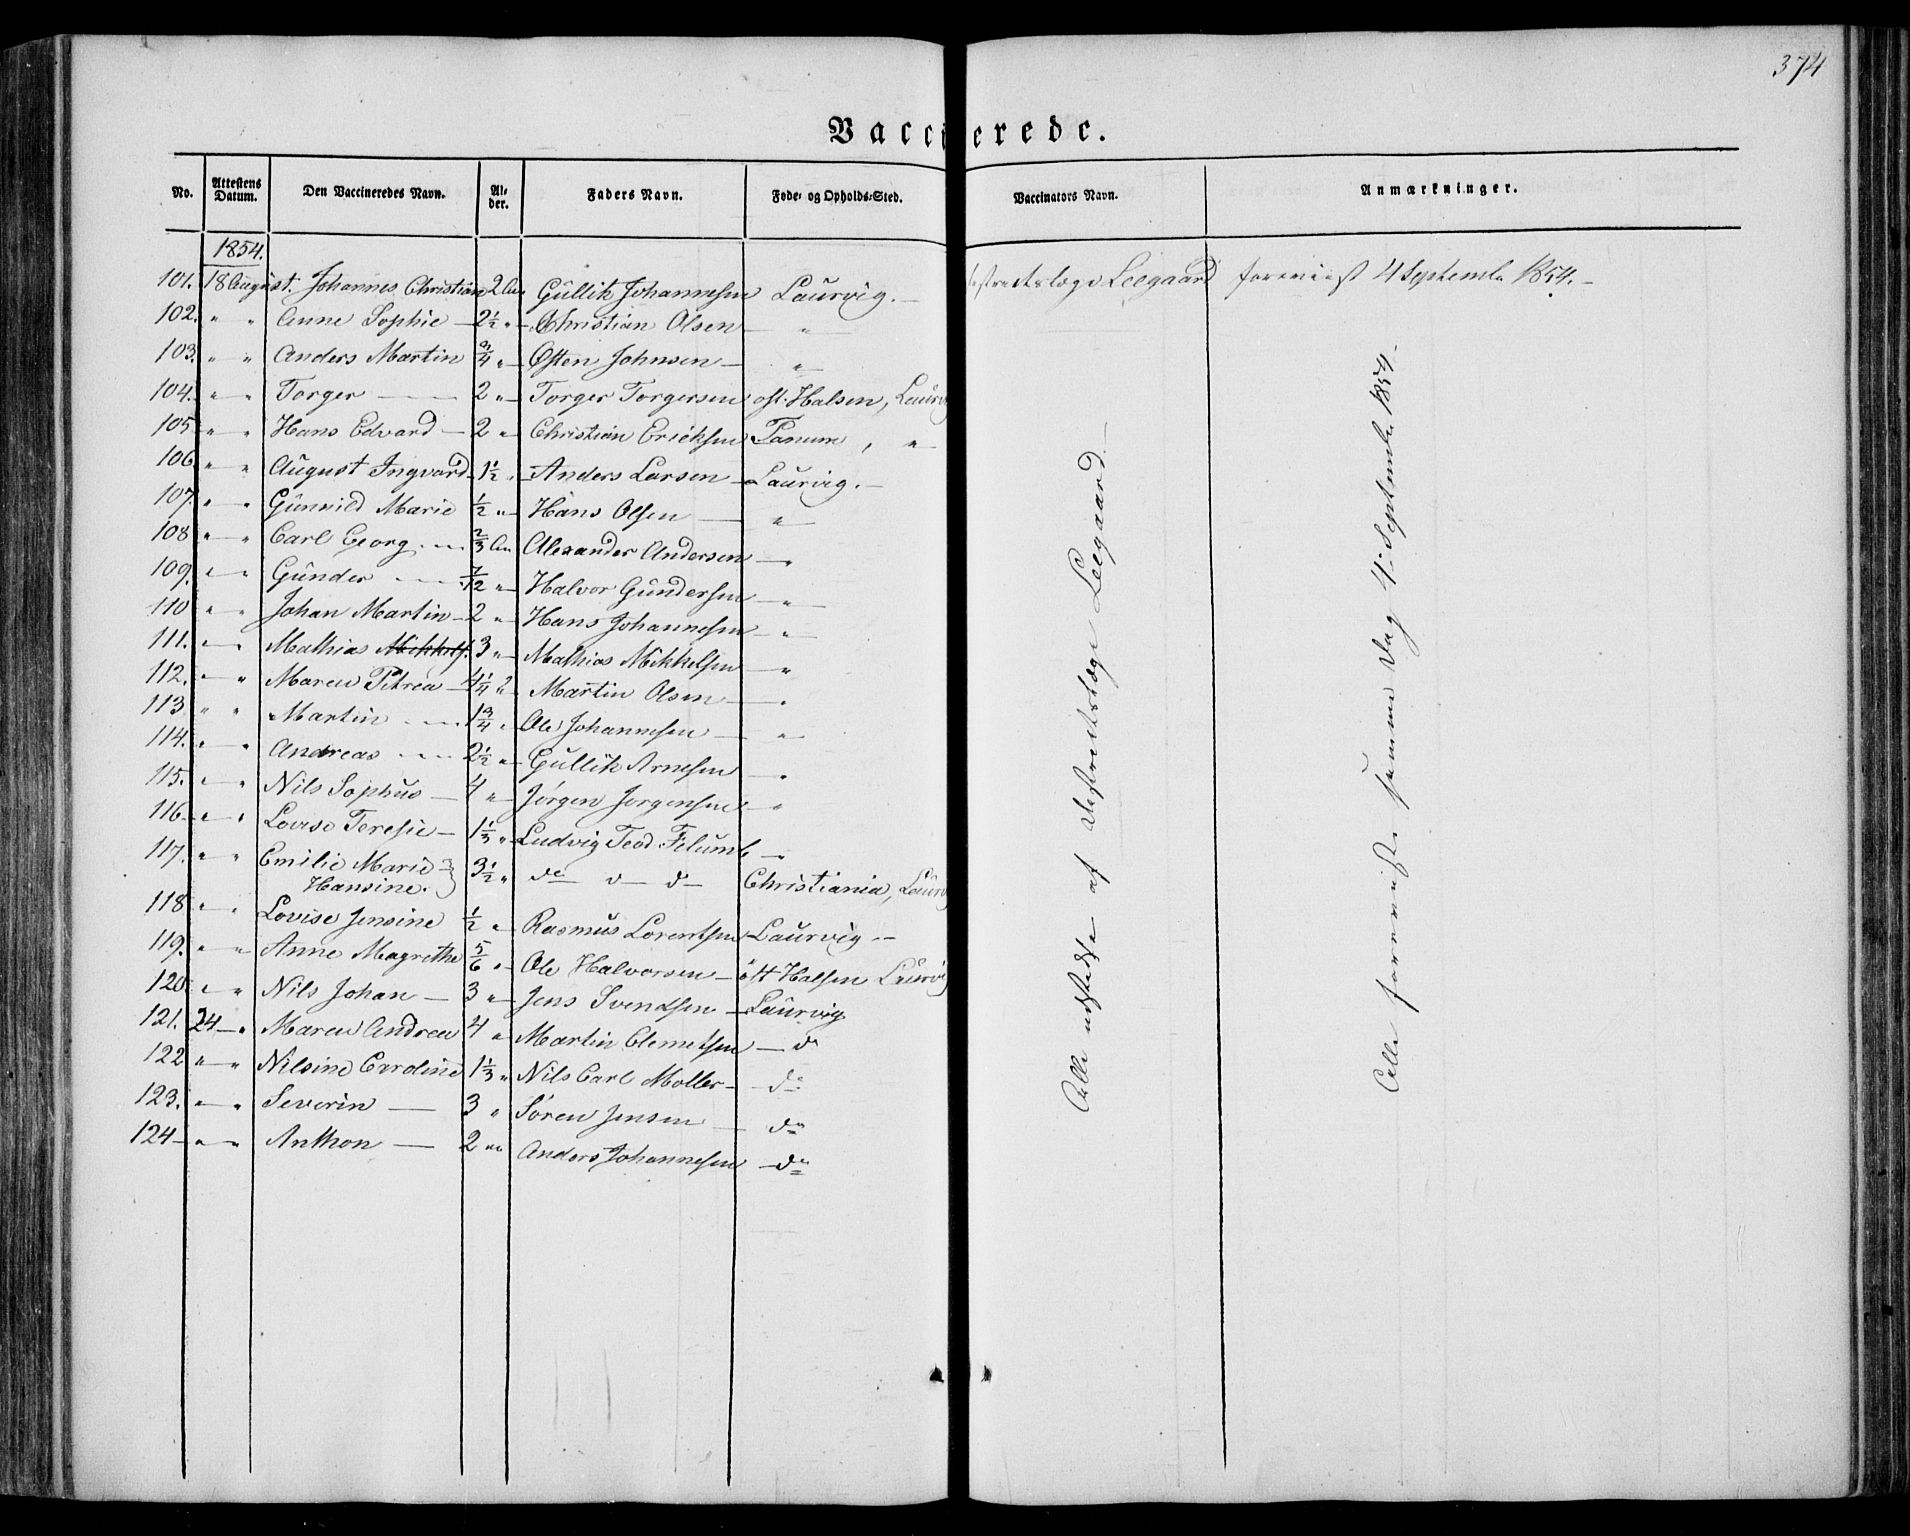 374
Vaccinerede.
No. Attestens Datum. Den Vaccineredes Navn. Alder. Faders Navn. Føde- og Opholds-Sted. Vaccinators Navn. Anmærkninger.
1854.
101. 18 August. Johannes Christian 2 Gullik Johannesen Laurvig. Leegaard foreviist 4 September 1854.
102. " " Anne Sophie 2½ " Christian Olsen "
103. " " Anders Martin ¾ " Østen Johnsen "
104. " " Torger 2 " Torger Torgersen øst. Halsen, Laurvig
105 " " Hans Edvard 2 " Christian Eriksen Tanum, "
106 " " August Ingvard 1½ " Anders Larsen Laurvig.
107. " " Gunnild Marie ½ " Hans Olsen "
108 " " Carl Georg ⅔ Alexander Andersen "
109. " " Gunder 7/12 " Halvor Gundersen "
110 " " Johan Martin 2 " Hans Johannesen "
111. " " Mathias Mikkels. 3 " Mathias Mikkelsen "
112. " " Maren Petrea 4¼ " Martin Olsen "
113 " " Martin 1¾ " Ole Johannesen "
114. " " Andreas 2½ " Gullik Arnesen "
115. " " Nils Sophus 4 " Jørgen Jørgensen "
116 " " Lovise Teresie 1⅓ " Ludvig Teod. "
117. " " Emilie Marie Hansine. 3½ " do d d Christiania, Laurv
118 " " Lovise Jensine ½ " Rasmus Lorentsen Laurvig
119. " " Anne Magrethe 5/6 " Ole Halvorsen øst Halsen Laurvig
120 " " Nils Johan 3 " Jens Svendsen Laurvig
121. 24 " Maren Andrea 4 " Martin Clemetsen do
122 " " Nilsine Caroline 1⅓ " Nils Carl Møller do
123. " " Severin 3 " Søren Jensen do
124 " " Anthon 2 " Anders Johannesen do
Alle udstedte af Destrectslæge Leegaard.
Alle foreviste samme Dag 4. September 1854.